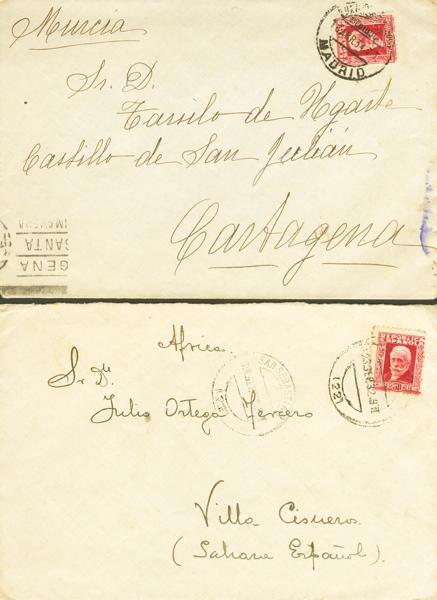 Murcia
MADRID
Sr. D.
Tarsilo de Ugarte
Castillo de San Julián
Cartagena
GENA
SANTA
Africa
REPUBLICA
ESPAÑOLA
Sr. D.
Julio Ortega Tercero
(22)
Villa Cisneros.
(Sahara Español).